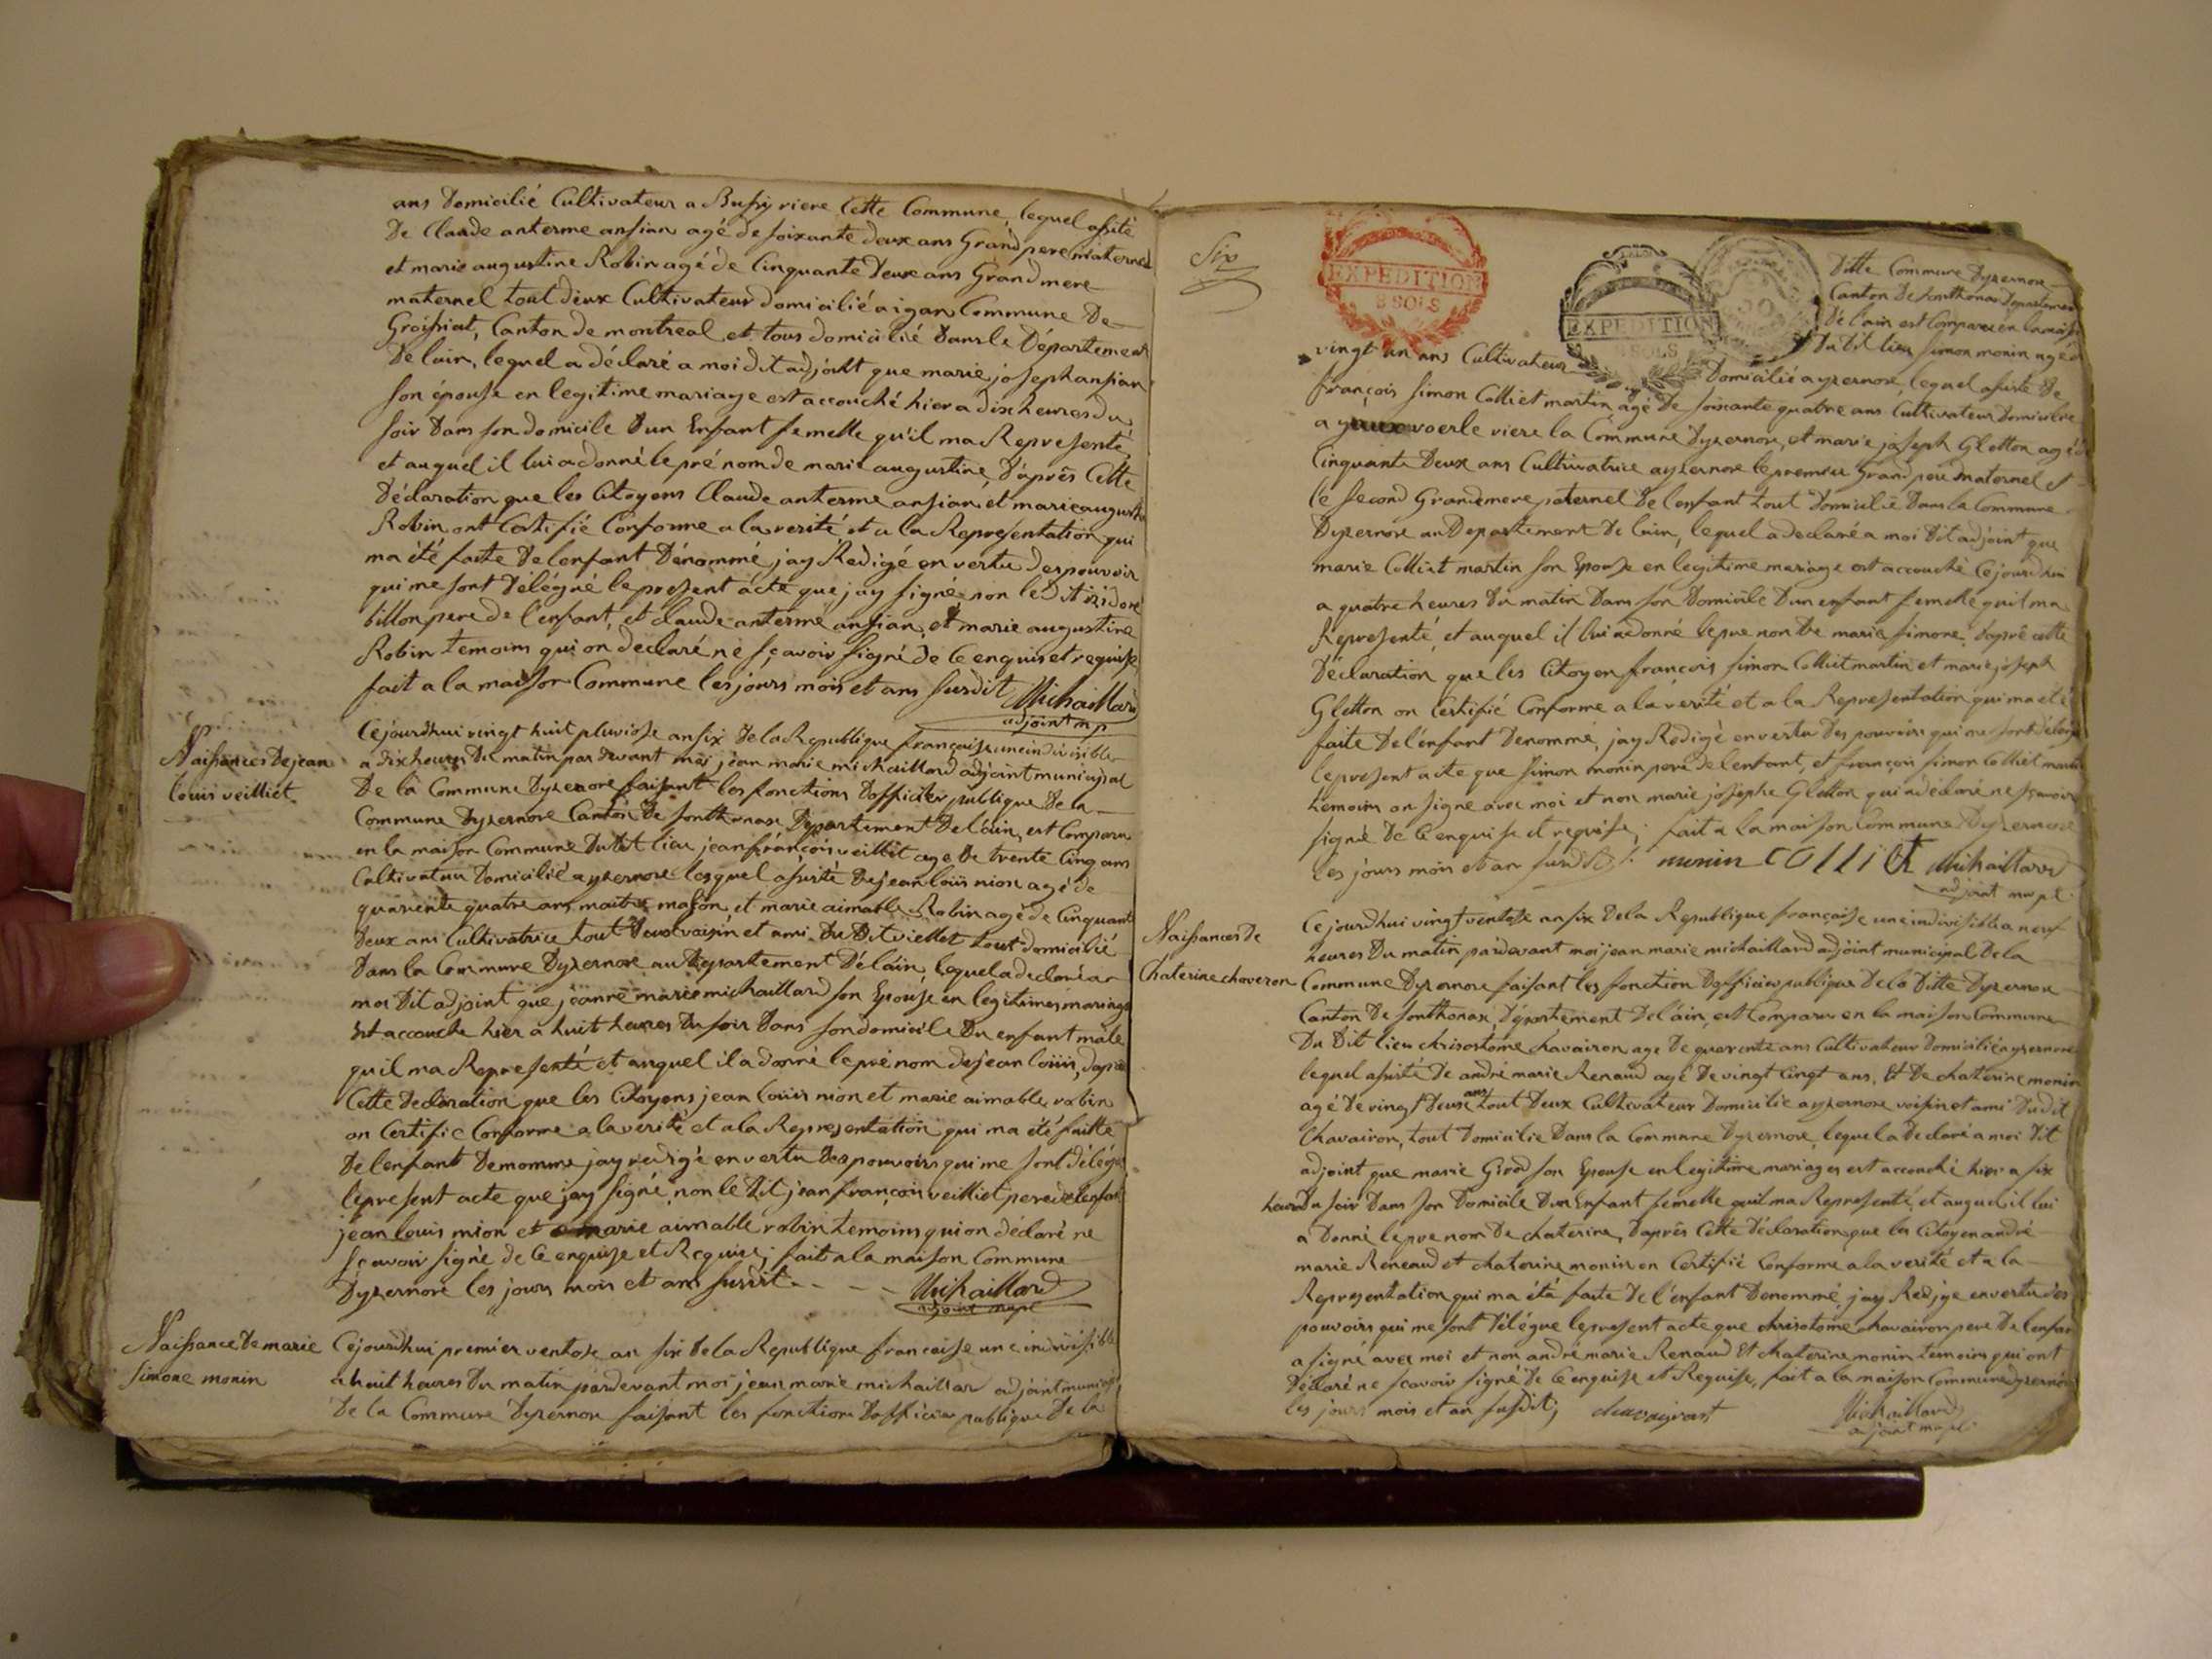 ans Domicilié Cultivateur a Bussy riere Cette Commune, lequel assité
De Claude anterme ansian agé de soixante deux ans Grand pere maternel
et marie augustine Robin agé de Cinquante Deux ans Grand mere
maternel tout deux Cultivateur domicilié a igan Commune De
Groissiat, Canton de montreal et tous domicilié Dans le Département
De lain, lequel a déclaré a moi dit adjoint que marie joseph ansian
son épouse en legitime mariage est accouché hier a dix heures du
soir Dans son domicile Dun Enfant femelle qu'il ma Representé,
et auquel il lui a donné le pré nom de marie augustine, D'après Cette
Déclaration que les Citoyens Claude anterme ansian, et marie augustine
Robin ont Certifié Conforme a la verité et a la Representation qui
ma été faite De lenfant Dénommé, jay Redigé en vertu des pouvoir
qui me sont Délégué le present acte que jay signé non ledit izidore
billon pere de l'enfant, et claude anterme ansian, et marie augustine
Robin temoins qui on declaré ne sçavoir signé de ce enquis et requise,
fait a la maison Commune les jours mois et ans susdit Michaillard
adjoint mp
Naissances De jean
louis veilliet
Cejourdhui vingt huit pluviose an six De la Republique française une indivisible
a dix heures Du matin par devant moi jean marie michaillard adjoint municipal
De la Commune Dyzernore faisant les fonctions Dofficier publique De la
Commune Dyzernore Canton De sonthonax Département De lain, est Comparu
en la maison Commune Du dit lieu jean françois veilliet age De trente Cinq ans
Cultivateur Domicilié a yzernore lesquel assisté De jean louis nion agé de
quarente quatre ans maitre mason, et marie aimable Robin agé de Cinquante
Deux ans Cultivatrice tout Deux voisin et ami Du Dit viellet tout domicilié
Dans la Commune Dyzernore au Département De lain, lequel a declaré a
moi Dit adjoint que jeanne marie michaillard son Epouse en legitimes mariage
Est accouché hier a huit heures Du soir Dans son domicile Du enfant mâle
quil ma Representé et auquel il a donné le pré nom de jean louis, dapré
Cette Declaration que les Citoyens jean louis nion et marie aimable robin
on Certifie Conforme a la verité et a la Representation qui ma été faitte
De lenfant Demomme jay redigé en vertu Des pouvoirs qui me sont délégué
le present acte que jay signé, non le Dit jean françois veilliet pere de lenfant
jean louis mion et marie aimable robin temoins qui on déclaré ne
sçavoir signé de ce enquise et Requise; fait a la maison Commune
Dyzernore les jours mois et ans susdit - - - Michaillard
adjoint mupl
Naissance De marie
simone monin
Cejourdhui premier ventose an six De la Republique francaise une indivisible
a huit heures Du matin pardevant moi jean marie michaillard adjoint municipal
De la Commune Dyzernore faisant les fonctions Dofficier publique De la
Six
EXPEDITION
8 SOLS
EXPEDITION
8 SOLS
Ditte Commune Dyzernore
Canton De sonthonax Departement
De l'ain est Comparu en la maison
Du dit lieu simon monin agé de
vingt un ans Cultivateur Domicilié a yzernore, lequel assisté De
françois simon Colliet martin agé De soixante quatre ans Cultivateur Domicilié
a voerle riere la Commune Dyzernore, et marie joseph Gletton agé de
Cinquante Deux ans Cultivatrice a yzernore le premier Grand pere maternel et
le second Grandemere paternel De lenfant tout Domicilié Dans la Commune
Dyzernore au Departement De lain, lequel a declaré a moi Dit adjoint que
marie Colliet martin son Epouse en legitime mariage est accouché Cejourdhui
a quatre heures Du matin Dans son Domicile Dun enfant femelle quil ma
Representé, et auquel il lui a donné le pre nom De marie simone, Daprè cette
Déclaration que les Citoyen françois simon Colliet martin et marie joseph
Gletton on Certifié Conforme a la verité et a la Representation qui ma eté
faite De l'enfant Denommé, jay Redigé en vertu Des pouvoirs qui me sont délégué
le present acte que simon monin pere de lenfant, et françois simon Colliet martin
temoins on signe avec moi et non marie josephe Gletton qui a déclaré ne scavoir
signé De ce enquise et requise; fait a la maison Commune Dyzernore
les jours mois et an susdit; monin colliet Michaillard
adjoint mupl
Naissances De
Chaterine choveron
Cejourdhui vingt ventose an six De la Republique française une indivisible a neuf
heures Du matin pardevant moi jean marie michaillard adjoint municipal De la
Commune Dyzernore faisant les fonction Dofficier publique De la Ditte Dyzernore
Canton De sonthonax, Département De lain, est Comparu en la maison Commune
Du Dit lieu chrisostome chavairon age De quarente ans Cultivateur Domicilié a yzernore
lequel assisté De andré marie Renaud agé De vingt Cingt ans, Et De chaterine monin
agé De vingt Deux ans tout Deux Cultivateur Domicilie a yzernore voisin et ami Dudit
Chavairon, tout Domicilie Dans la Commune Dyzernore, lequel a Declaré a moi Dit
adjoint que marie Girod son Epouse en legitime mariages est accouché hier a six
heures Du soir Dans son Domicile Dun Enfant femelle quil ma Representé, et auquel il lui
a Donné le pre nom De chaterine, Daprês Cette Déclaration que les Citoyen andré
marie Reneaud et chaterine monin on Certifié Conforme a la verité et a la
Representation qui ma été faite De l'enfant Denommé, jay Redjge en vertu des
pouvoirs qui me sont Délégue le present acte que chrisotome chavairon pere De lenfan
a signé avec moi et non andré marie Renaud Et chaterine monin temoins qui ont
Déclaré ne scavoir signé De ce enquise et Requise, fait a la maison Commune Dyzernore
les jours mois et an susdit; Michaillard
adjoint mupl